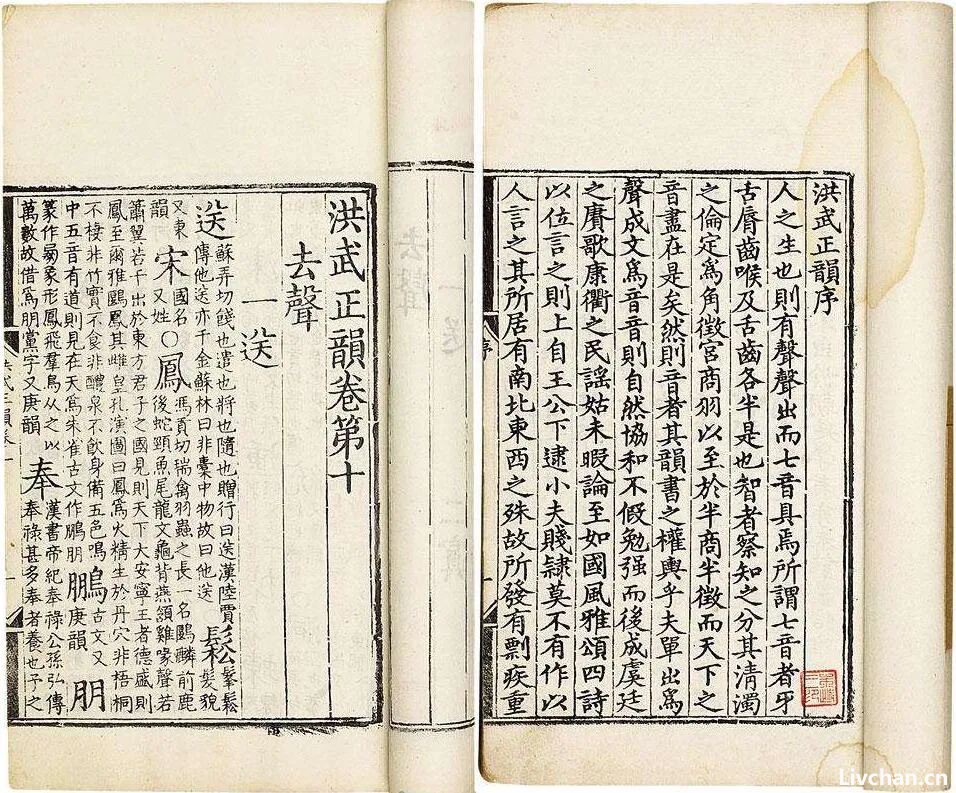 洪武正韻序
人之生也則有聲聲出而七音具焉所謂七音者牙
舌脣齒喉及舌齒各半是也智者察知之分其清濁
之倫定爲角徵宮商羽以至於半商半徵而天下之
音盡在是矣然則音者其韻書之權輿乎夫單出爲
聲成文爲音音則自然協和不假勉强而後成虞廷
之賡歌康衢之民謡姑未暇論至如國風雅頌四詩
以位言之則上自王公下逮小夫賤隸莫不有作以
人言之其所居有南北東西之殊故所發有剽疾重
序
洪武正韻卷第十
去聲
一送
送蘇弄切餞也遣也將也隨也贈行曰送漢陸賈傳他送亦千金蘇林曰非橐中物故曰他送鬆鬆髮貌
又東韻宋國名又姓〇鳳馮貢切瑞禽羽蟲之長一名鶠麟前鹿後蛇頸魚尾龍文龜背燕頷雞喙聲若
簫翼若干出於東方君子之國見則天下大安寧王者德盛則鳳至爾雅鶠鳳其雌皇孔演圖曰鳳爲火精生於丹穴非梧桐
不棲非竹實不食非醴泉不飲身備五色鳴中五音有道則見在天爲朱雀古文作鵬朋鵬古文又庚韻朋
篆作象形鳳飛羣鳥从之以萬數故借爲朋黨字又庚韻奉漢書帝紀奉祿公孫弘傳奉祿甚多奉者養也子之
Livchan.cn